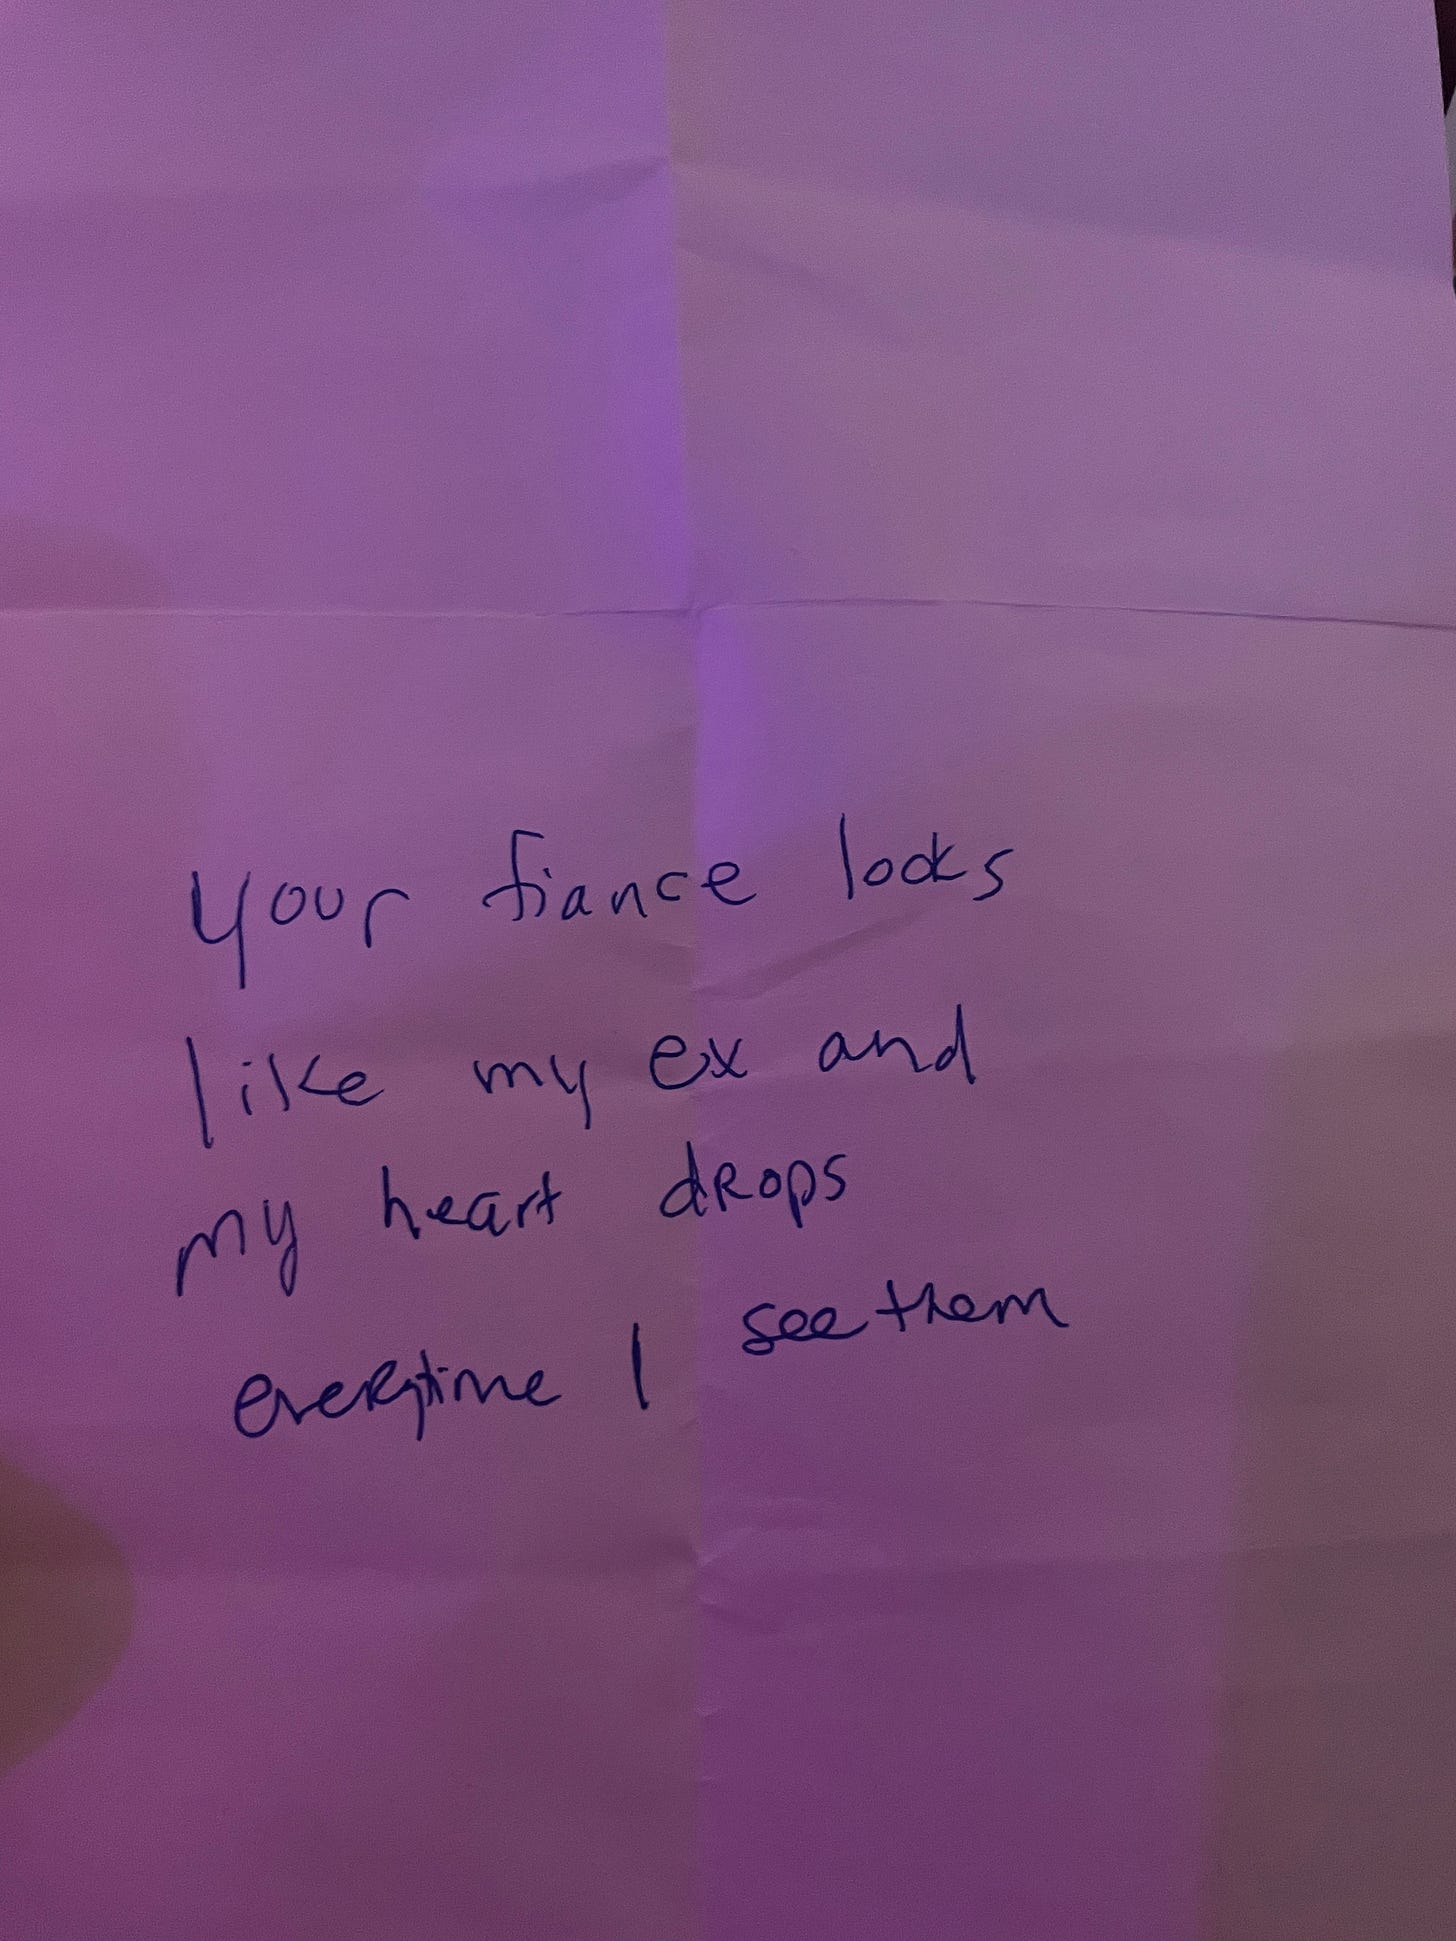 your fiance looks
like my ex and
my heart dRops
everytime I see them